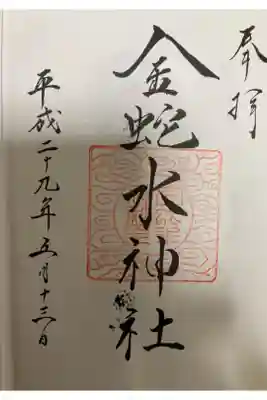 奉拝
金蛇水神社
平成二十九年五月十三日